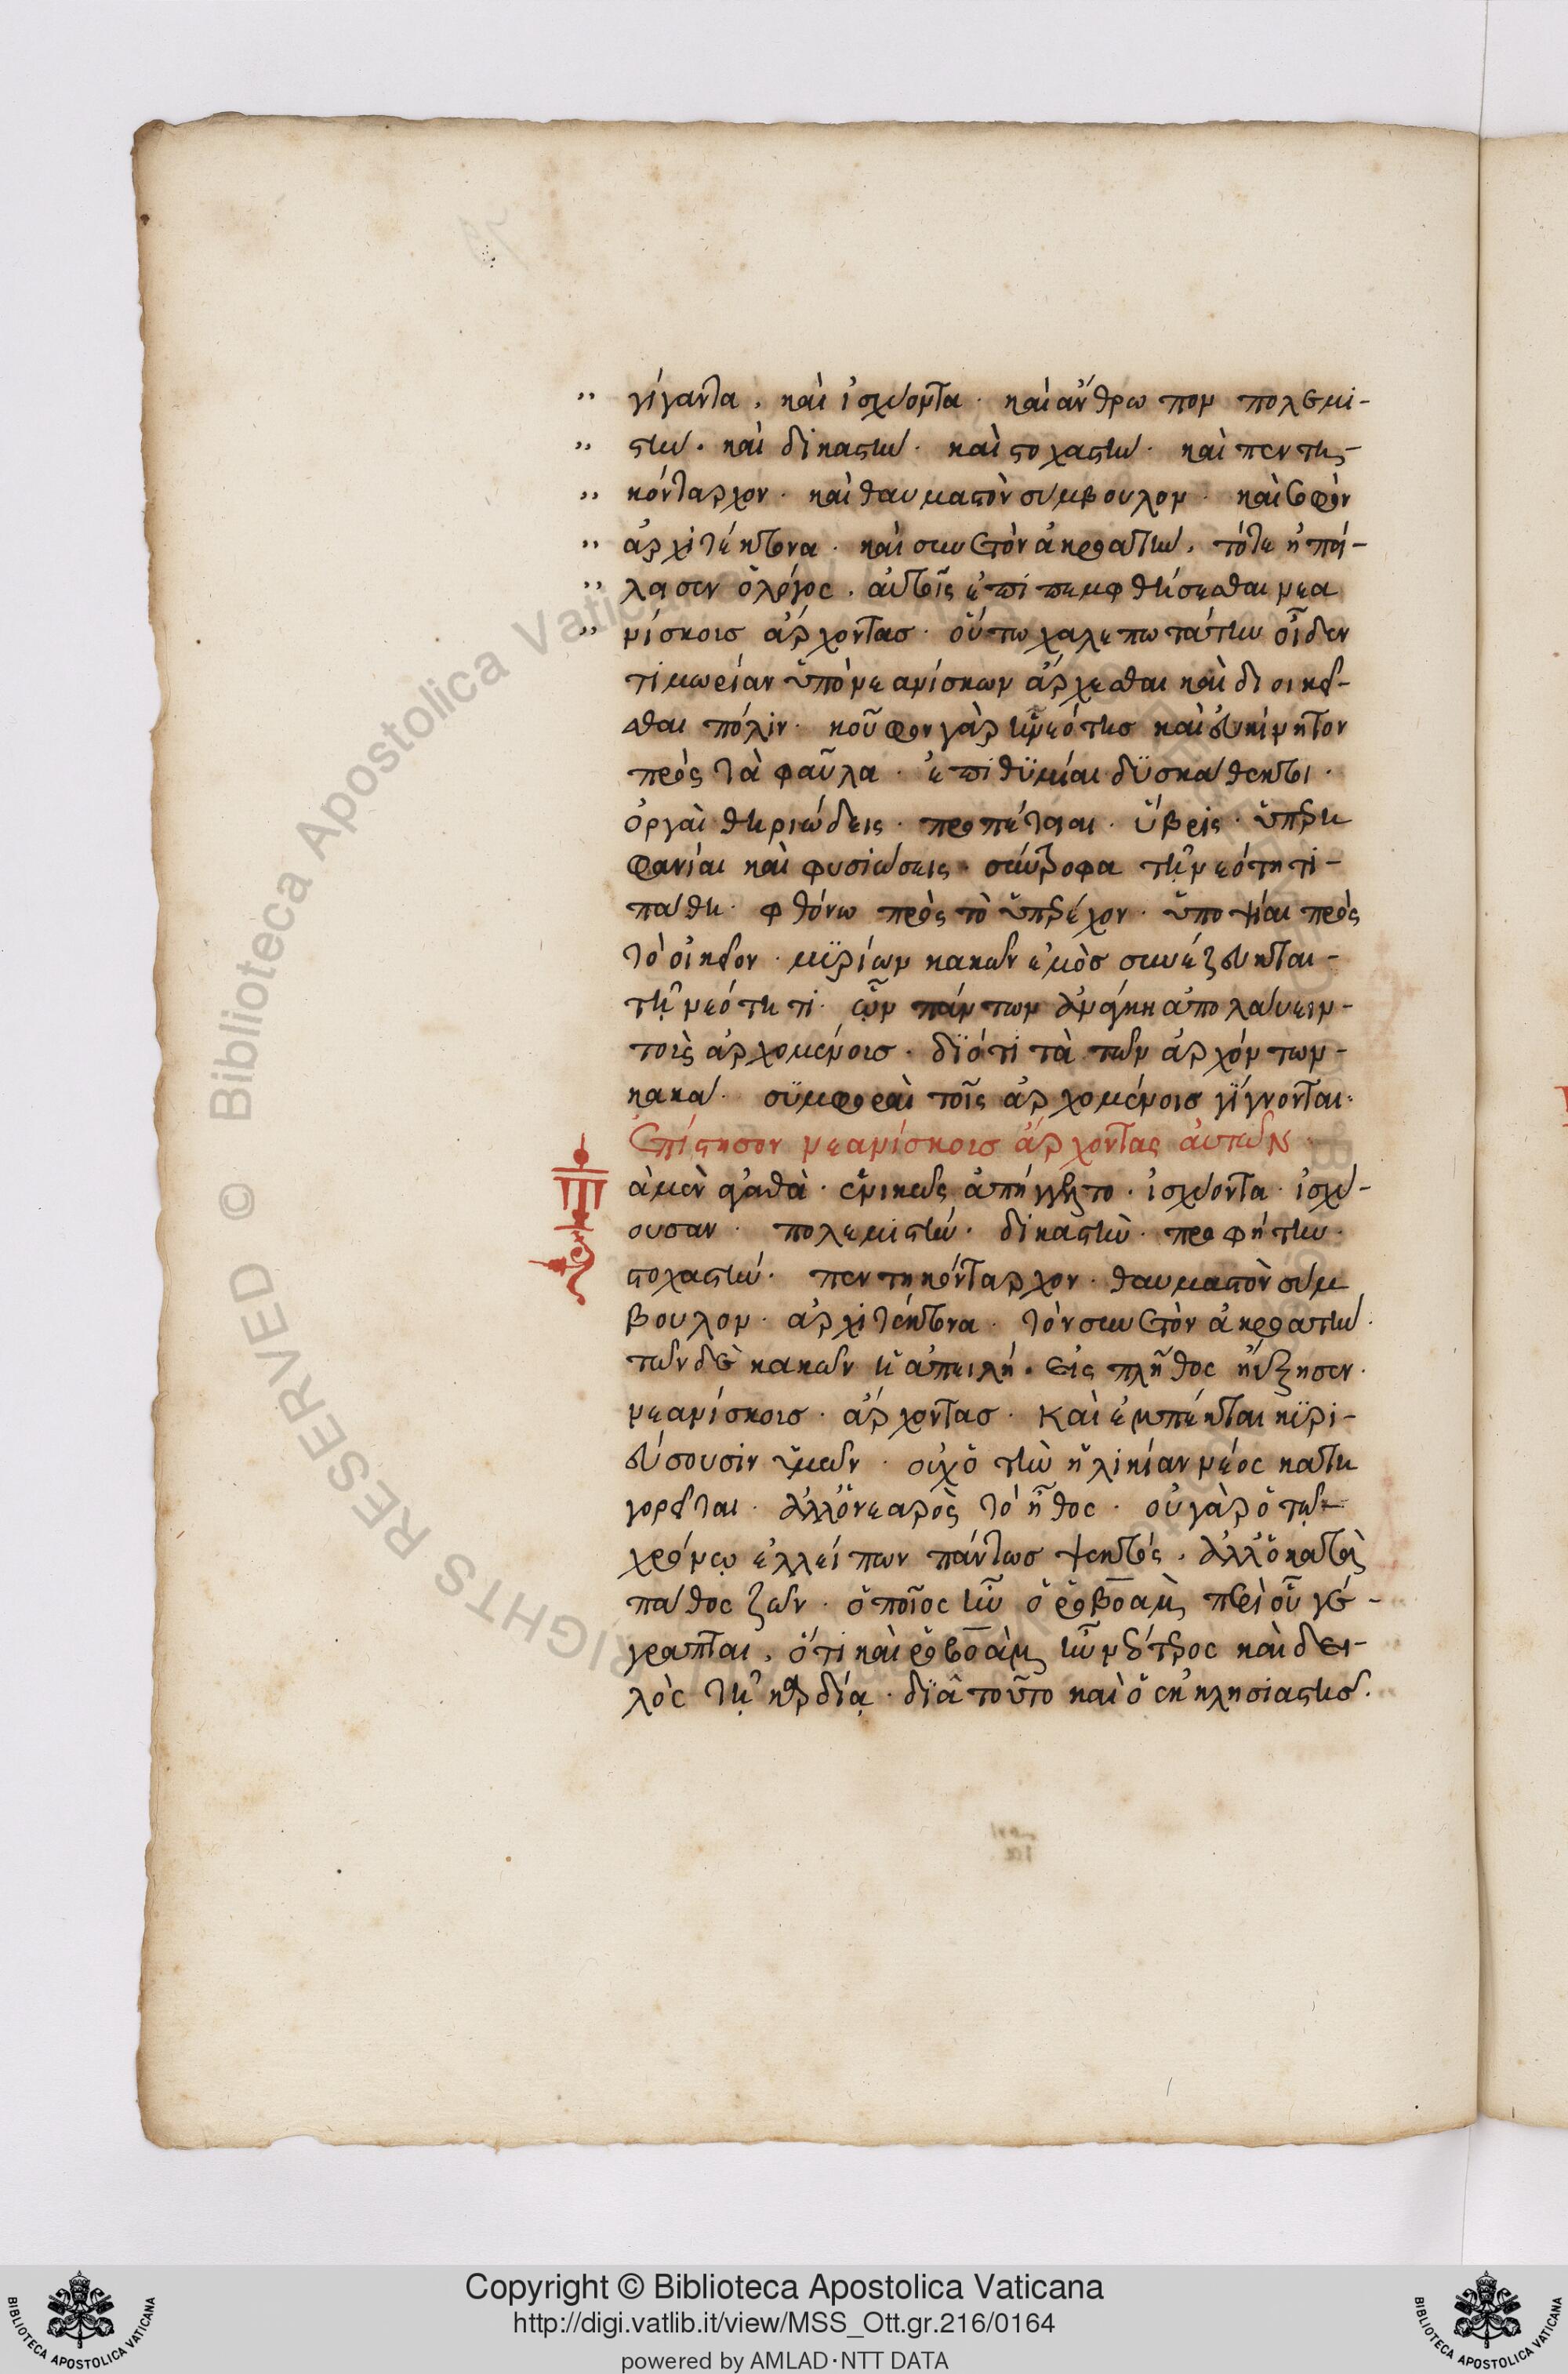 γίγαντα, καὶ ἰσχύοντα · καὶ ἄνθρωπον πολεμι-
στὴν · καὶ δικαστὴν · καὶ στοχαστὴν · καὶ πεντη-
κόνταρχον · καὶ θαυμαστὸν σύμβουλον · καὶ σοφὸν
ἀρχιτέκτονα · καὶ συνετὸν ἀκροατὴν, τότε ἠπεί-
λησεν ὁ λόγος, αὐτοῖς ἐπιπεμφθήσεσθαι νεα
νίσκοις ἄρχοντας · οὕτω χαλεπωτάτην οἶδεν
τιμωρίαν ὑπὸ νεανίσκων ἄρχεσθαι καὶ διοικεῖ-
σθαι πόλιν · κοῦφον γὰρ ἡ νεότης καὶ εὐκίνητον
πρὸς τὰ φαῦλα · ἐπιθυμίαι δυσκάθεκτοι ·
ὀργαὶ θηριώδεις · προπέτειαι · ὕβρις · ὑπερη
φανίαι καὶ φυσιώσεις · σύντροφα τῇ νεότητι-
πάθη · φθόνω πρὸς τὸ ὑπερέχον · ὑποψίαι πρὸς
τὸ οἰκεῖον · μυρίων κακῶν ἐμὸσ συνέζευκται-
τῇ νεότητι · ὧν πάντων ἀνάγκη ἀπολαύειν-
τοὶς ἀρχομένοις · διότι τὰ τῶν ἀρχόντων-
κακὰ · συμφοραὶ τοῖς ἀρχομένοις γίγνονται·
Ἐπίστησον νεανίσκοις ἄρχοντας αὐτῶν ·
ἃ μὲν ἀγαθὰ · ἑνικῶς ἀπήγγελτο · ἰσχύοντα · ἰσχύ-
ουσαν · πολεμιστήν · δικαστὴν · προφήτην ·
στοχαστήν · πεντηκόνταρχον · θαυμαστὸν σύμ
βουλον · ἀρχιτέκτονα · τὸν συνετὸν ἀκροατὴν ·
τῶν δὲ κακῶν ἡ ἀπειλή · εἰς πλῆθος ηὔξησεν ·
νεανίσκοις · ἄρχοντας · Καὶ ἐμπέκται κυρι-
εύσουσιν ὑμῶν · οὐχ ὁ τὴν ἡλικίαν νέος κατη
γορεῖται · ἀλλ' ὁ νεαρὸς τὸ ἦθος · οὐ γὰρ ὁ τῶ
χρόνῳ ἐλλείπων πάντως ψεκτός · ἀλλ' ὁ κατὰ
πάθος ζῶν · ὁποῖος ἦν ὁ ῥοβοὰμ περὶ οὗ γέ-
γραπται, ὅτι καὶ ῥοβοὰμ ἦν νεώτερος καὶ δει-
λὸς τῇ καρδίᾳ · διὰ τοῦτο καὶ ὁ ἐκκλησιαστής ·
Copyright © Biblioteca Apostolica Vaticana
http://digi.vatlib.it/view/MSS_Ott.gr.216/0164
powered by AMLAD·NTT DATA